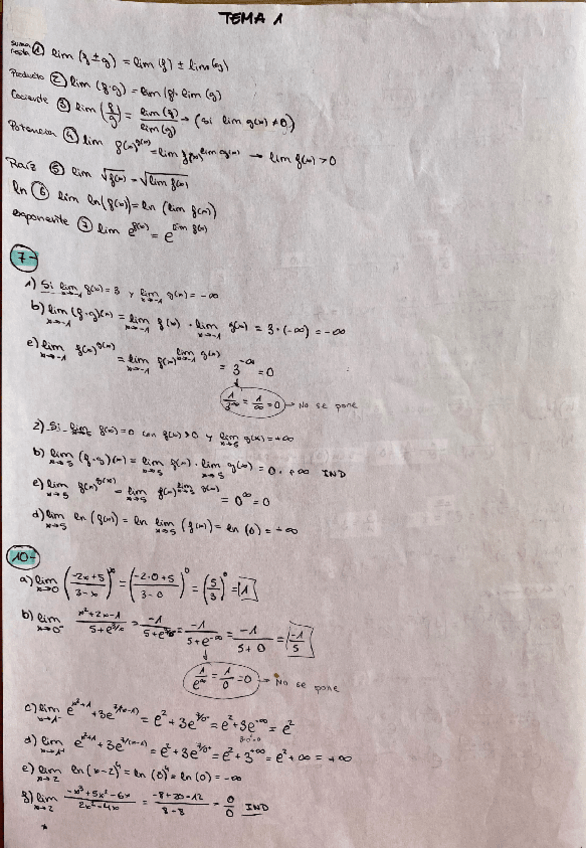 TEMA 1
suma resta ① lim (f ± g) = lim (f) ± lim (g)
Producto ② lim (f·g) = lim (f)· lim (g)
Cociente ③ lim (f/g) = lim(f)/lim(g) → (si lim g(x) ≠ 0)
Potencia ④ lim f(x)^g(x) = lim f(x)^lim g(x) → lim f(x) > 0
Raíz ⑤ lim √f(x) = √lim f(x)
ln ⑥ lim ln(f(x)) = ln (lim f(x))
exponente ⑦ lim e^f(x) = e^lim f(x)
7-
1) Si lim x→-1 f(x) = 3 y lim x→-1 g(x) = -∞
b) lim x→-1 (f·g)(x) = lim x→-1 f(x) · lim x→-1 g(x) = 3·(-∞) = -∞
e) lim x→-1 f(x)^g(x) = lim x→-1 f(x)^lim x→-1 g(x) = 3^-∞ = 0
1/3^∞ = 1/∞ = 0 → No se pone
2) Si lim f(x) = 0 con f(x) > 0 y lim x→5 g(x) = +∞
b) lim x→5 (f·g)(x) = lim x→5 f(x) · lim x→5 g(x) = 0 · +∞ IND
e) lim x→5 f(x)^g(x) = lim x→5 f(x)^lim x→5 g(x) = 0^∞ = 0
d) lim x→5 ln (f(x)) = ln lim x→5 (f(x)) = ln (0) = -∞
10-
a) lim x→0 ((-2x+5)/(3-x))^x = ((-2·0+5)/(3-0))^0 = (5/3)^0 = 1
b) lim x→0⁻ (x²+2x-1)/(5+e^3/x) = -1/(5+e^3/0⁻) = -1/(5+e^-∞) = -1/(5+0) = -1/5
1/e^∞ = 1/0 = 0 → No se pone
c) lim x→1⁻ e^x²+1 + 3e^3/(x-1) = e² + 3e^3/0⁻ = e² + 3e^-∞ = e²
3·0=0
d) lim x→1⁺ e^x²+1 + 3e^3/(x-1) = e² + 3e^3/0⁺ = e² + 3^+∞ = e² + ∞ = +∞
e) lim x→2 ln (x-2)⁴ = ln (0)⁴ = ln (0) = -∞
f) lim x→2 (-x³+5x²-6x)/(2x²-4x) = (-8+20-12)/(8-8) = 0/0 IND
*